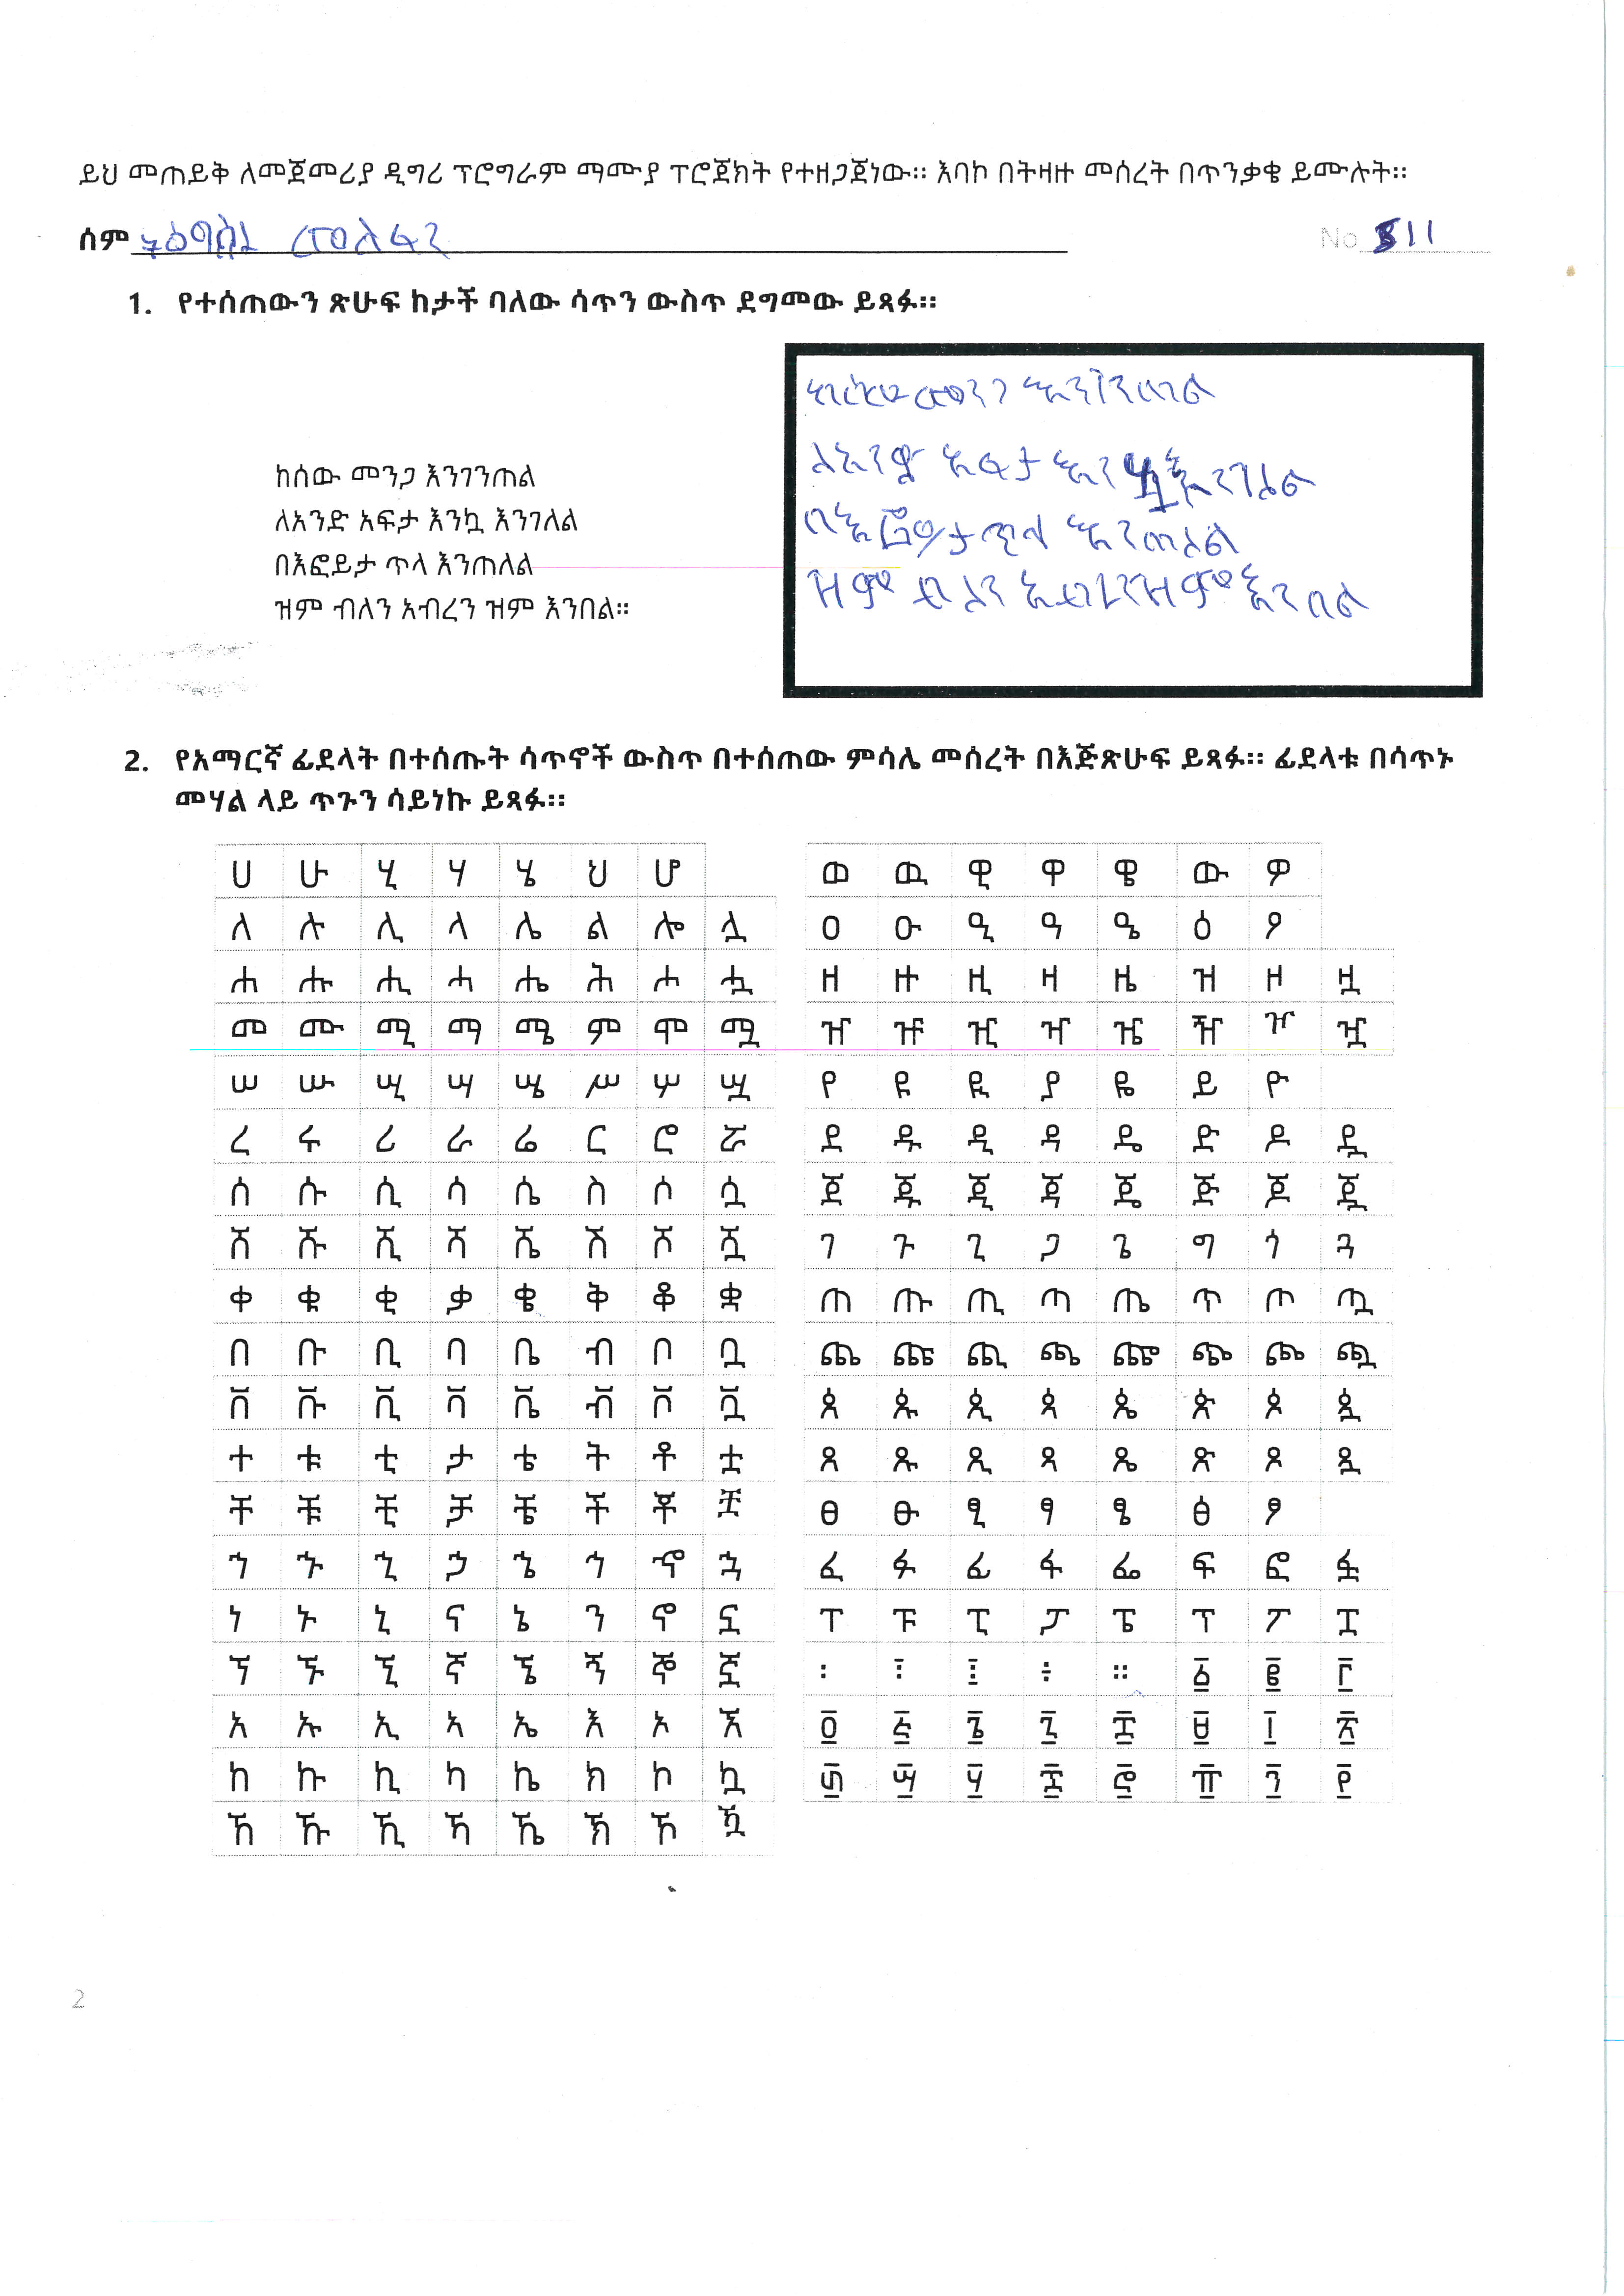 ይህ መጠይቅ ለመጀመሪያ ዲግሪ ፕሮግራም ማሙያ ፕሮጀክት የተዘጋጀነው። እባኮ በትዛዙ መሰረት በጥንቃቄ ይሙሉት።
ሰም No 811
1. የተሰጠውን ጽሁፍ ከታች ባለው ሳጥን ውስጥ ደግመው ይጻፉ።
ከሰው መንጋ እንገንጠል
ለአንድ አፍታ እንኳ እንገለል
በእፎይታ ጥላ እንጠለል
ዝም ብለን አብረን ዝም እንበል።
ከሰው መንጋ እንገንጠል
ለአንድ አፍታ እንኳ እንገለል
በእፎይታ ጥላ እንጠለል
ዝም ብለን አብረን ዝም እንበል
2. የአማርኛ ፊደላት በተሰጡት ሳጥኖች ውስጥ በተሰጠው ምሳሌ መሰረት በእጅጽሁፍ ይጻፉ። ፊደላቱ በሳጥኑ
መሃል ላይ ጥጉን ሳይነኩ ይጻፉ።
ሀ ሁ ሂ ሃ ሄ ህ ሆ
ለ ሉ ሊ ላ ሌ ል ሎ ሏ
ሐ ሑ ሒ ሓ ሔ ሕ ሖ ሗ
መ ሙ ሚ ማ ሜ ም ሞ ሟ
ሠ ሡ ሢ ሣ ሤ ሥ ሦ ሧ
ረ ሩ ሪ ራ ሬ ር ሮ ሯ
ሰ ሱ ሲ ሳ ሴ ስ ሶ ሷ
ሸ ሹ ሺ ሻ ሼ ሽ ሾ ሿ
ቀ ቁ ቂ ቃ ቄ ቅ ቆ ቋ
በ ቡ ቢ ባ ቤ ብ ቦ ቧ
ቨ ቩ ቪ ቫ ቬ ቭ ቮ ቯ
ተ ቱ ቲ ታ ቴ ት ቶ ቷ
ቸ ቹ ቺ ቻ ቼ ች ቾ ቿ
ኀ ኁ ኂ ኃ ኄ ኅ ኆ ኋ
ነ ኑ ኒ ና ኔ ን ኖ ኗ
ኘ ኙ ኚ ኛ ኜ ኝ ኞ ኟ
አ ኡ ኢ ኣ ኤ እ ኦ ኧ
ከ ኩ ኪ ካ ኬ ክ ኮ ኳ
ኸ ኹ ኺ ኻ ኼ ኽ ኾ ዃ
ወ ዉ ዊ ዋ ዌ ው ዎ
ዐ ዑ ዒ ዓ ዔ ዕ ዖ
ዘ ዙ ዚ ዛ ዜ ዝ ዞ ዟ
ዠ ዡ ዢ ዣ ዤ ዥ ዦ ዧ
የ ዩ ዪ ያ ዬ ይ ዮ
ደ ዱ ዲ ዳ ዴ ድ ዶ ዷ
ጀ ጁ ጂ ጃ ጄ ጅ ጆ ጇ
ገ ጉ ጊ ጋ ጌ ግ ጎ ጓ
ጠ ጡ ጢ ጣ ጤ ጥ ጦ ጧ
ጨ ጩ ጪ ጫ ጬ ጭ ጮ ጯ
ጰ ጱ ጲ ጳ ጴ ጵ ጶ ጷ
ጸ ጹ ጺ ጻ ጼ ጽ ጾ ጿ
ፀ ፁ ፂ ፃ ፄ ፅ ፆ
ፈ ፉ ፊ ፋ ፌ ፍ ፎ ፏ
ፐ ፑ ፒ ፓ ፔ ፕ ፖ ፗ
፡ ፣ ፤ ፥ ። ፩ ፪ ፫
፬ ፭ ፮ ፯ ፰ ፱ ፲ ፳
፴ ፵ ፶ ፷ ፸ ፹ ፺ ፻
2